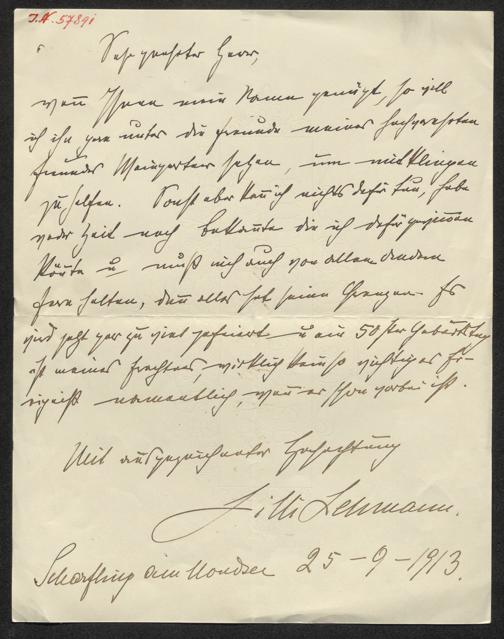 I.N. 57891
Sehr geehrter Herr,
wenn Ihnen mein Name genügt, so will
ich ihn gern unter die Freunde meines hochverehrten
Freundes Weingartner setzen, um mitklingen
zu helfen. Sonst aber kann ich nichts dafür tun, habe
weder Zeit noch Bekannte die ich dafür gewinnen
könnte u muß mich auch von allem andern
fern halten, denn alles hat seine Grenzen. Es
wird jetzt gar zu viel gefeiert u ein 50ster Geburtstag
ist meines Erachtens, wirklich kein so wichtiges Er-
eigniß namentlich, wenn er schon vorbei ist.
Mit ausgezeichneter Hochachtung
Lilli Lehmann.
Scharfling am Mondsee 25-9-1913.